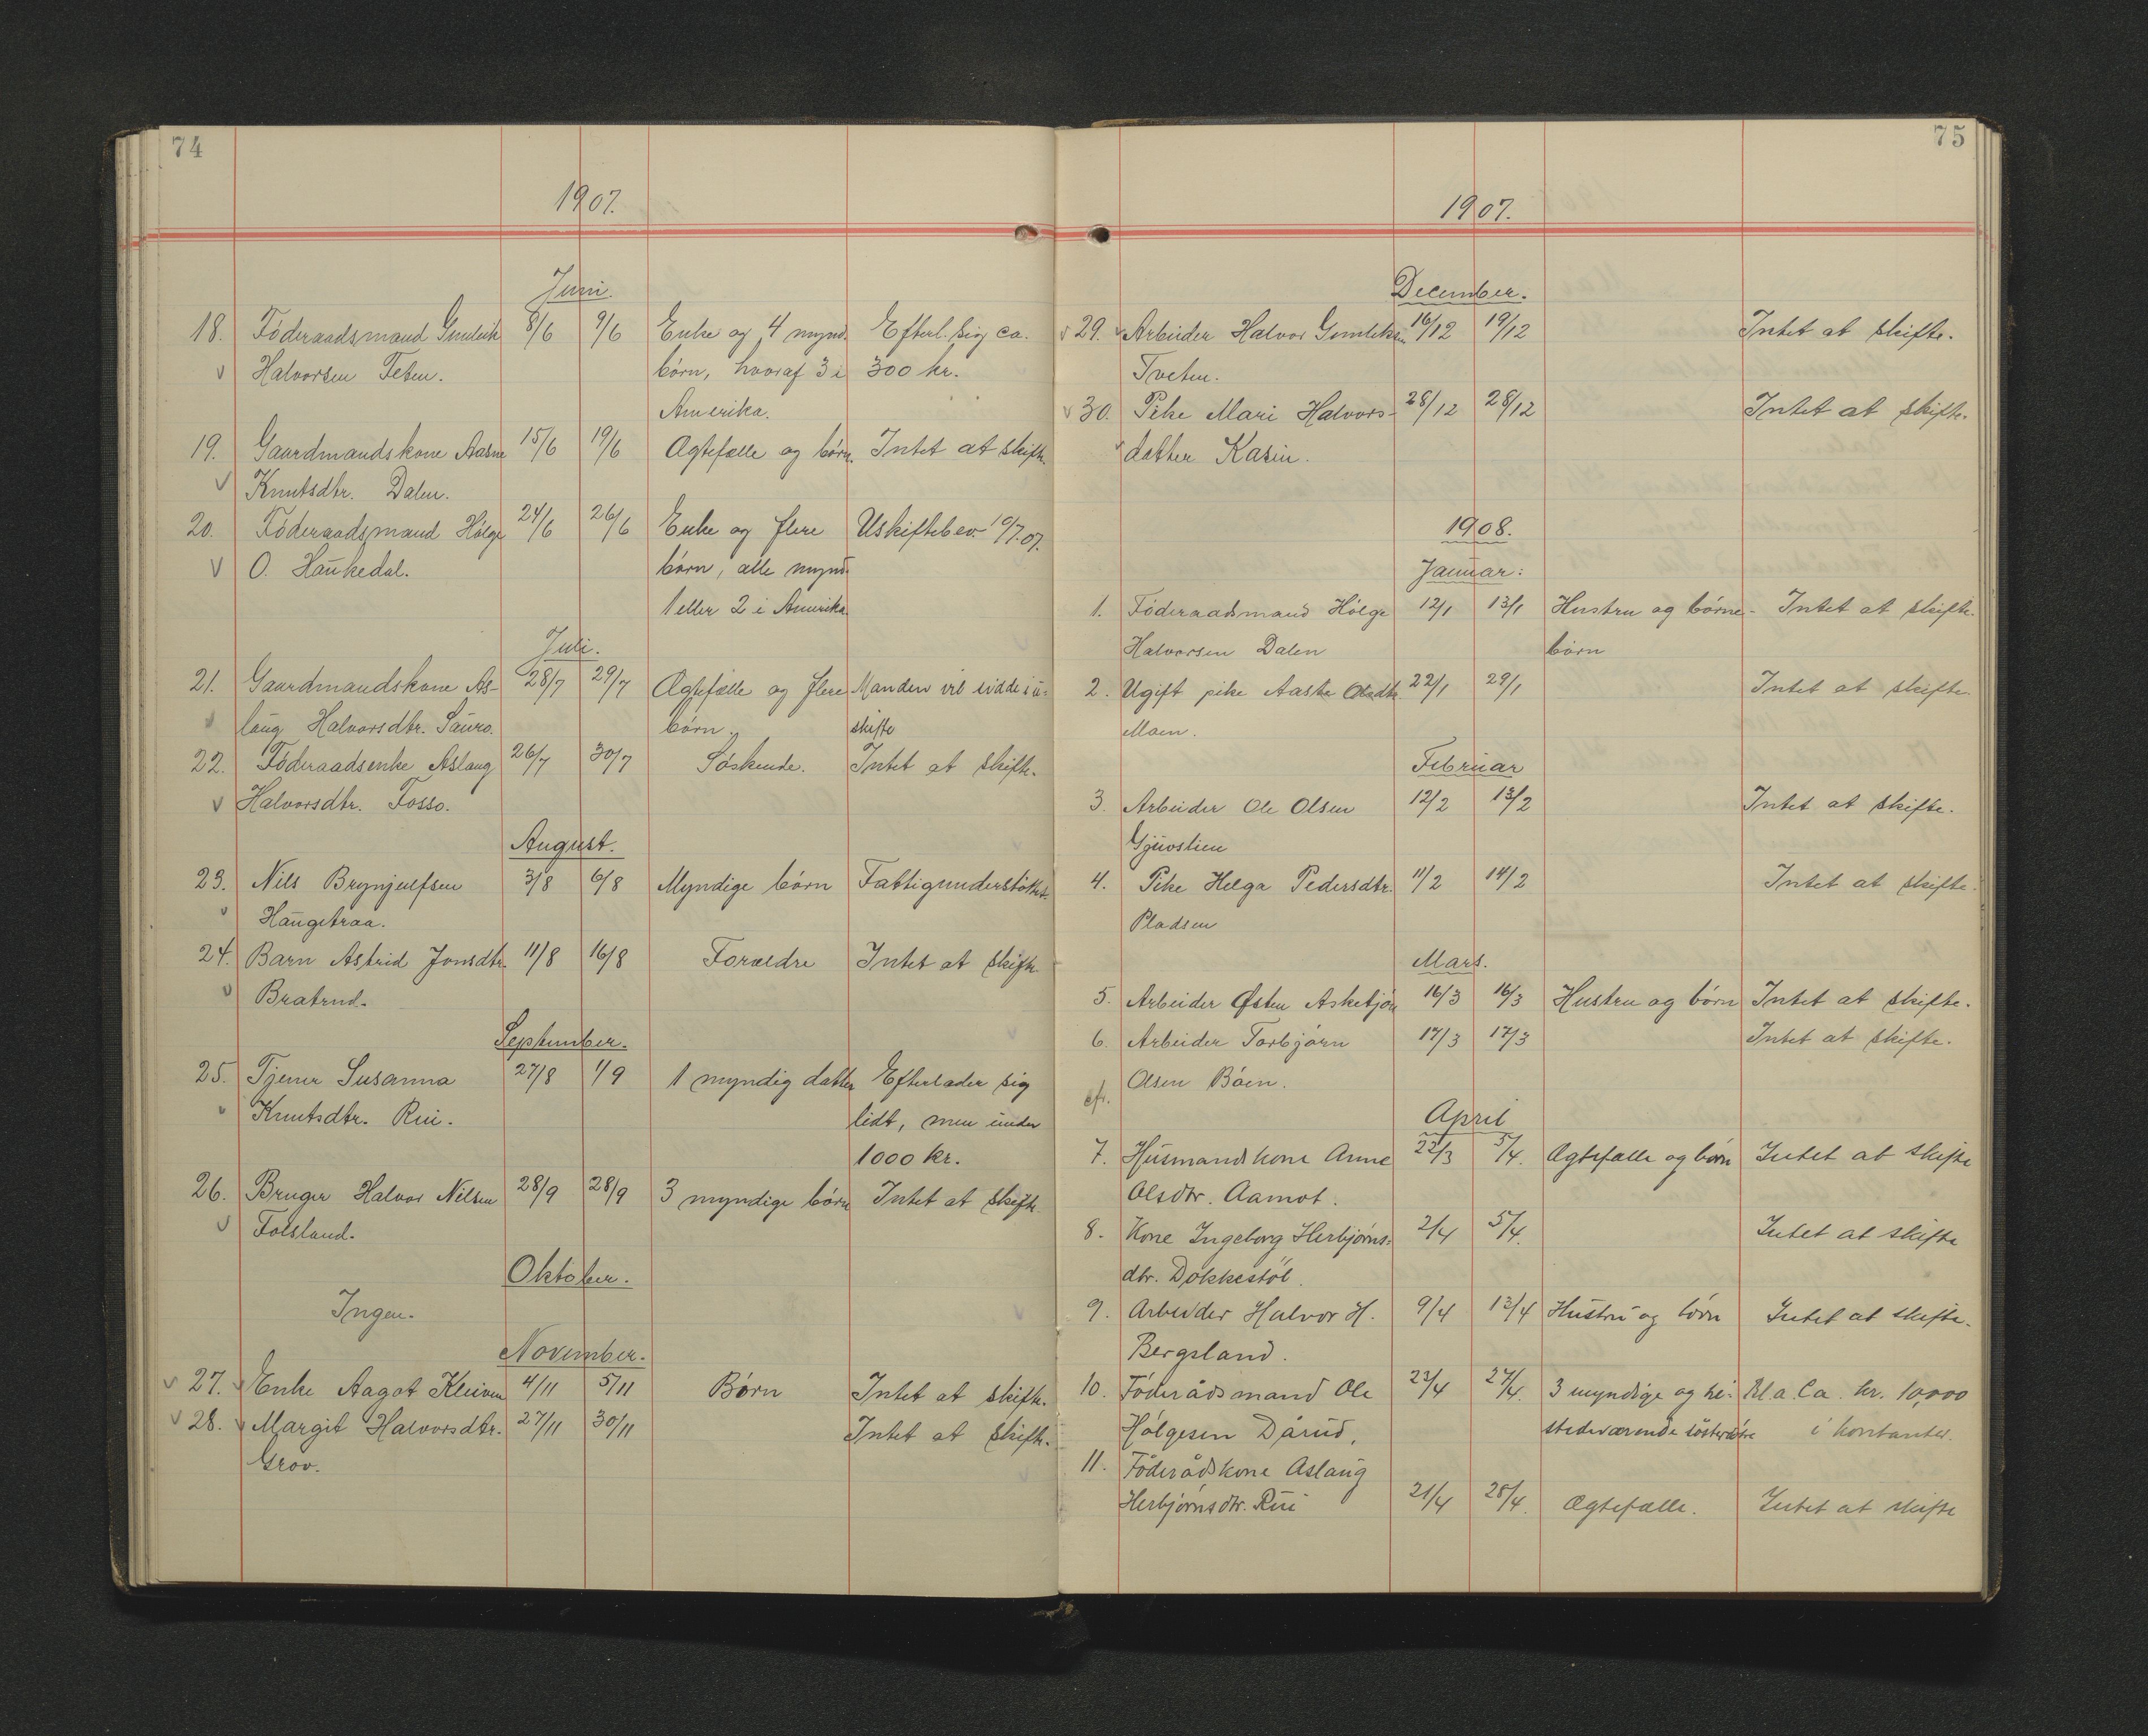 74
1907.
Juni.
18. Föderaadsmand Gunleik 8/6 9/6 Enke og 4 mynd. Efterl. sig ca.
v Halvorsen Teten. börn, hvoraf 3 i 300 kr.
Amerika.
19. Gaardmandskone Aasne 15/6 19/6 Ægtefælle og börn. Intet at skifte.
v Knutsdtr. Dalen.
20. Föderaadsmand Hölge 24/6 26/6 Enke og flere Uskiftebev. 10/7.07.
v O. Haukedal. börn, alle mynd.
1 eller 2 i Amerika
Juli.
21. Gaardmandskone As- 28/7 29/7 Ægtefælle og flere Manden vil sidde i u-
v laug Halvorsdtr. Sauro. börn. skifte
22. Föderaadsenke Aslaug 26/7 30/7 Söskende. Intet at skifte.
v Halvorsdtr. Fosso.
August.
23. Nils Brynjulfsen 3/8 6/8 Myndige börn Fattigunderstöttet.
v Haugetraa.
24. Barn Astrid Jonsdtr. 11/8 16/8 Forældre Intet at skifte.
v Bratrud.
September.
25. Tjener Susanna 27/8 1/9 1 myndig datter Efterlader sig
v Knutsdtr. Rui. lidt, men under
1000 kr.
26. Bruger Halvor Nilsen 28/9 28/9 3 myndige börn Intet at skifte.
v Folsland.
Oktober.
Ingen.
November.
v 27. v Enke Aagot Kleiven 4/11 5/11 Børn Intet at skifte.
v 28. v Margit Halvorsdtr. 27/11 30/11 Intet at skifte.
Grov.
75
1907.
December.
v 29. v Arbeider Halvor Gunleiks. 16/12 19/12 Intet at skifte.
Tveten.
v 30. Pike Mari Halvors- 28/12 28/12 Intet at skifte.
v datter Kasin.
1908.
Januar:
1. Föderaadsmand Hölge 12/1 13/1 Hustru og börne- Intet at skifte.
Halvorsen Dalen börn
2. Ugift pike Aaste Olsdtr. 22/1 29/1 Intet at skifte.
Moen.
Februar
3. Arbeider Ole Olsen 12/2 13/2 Intet at skifte.
Gjuvslien
4. Pike Helga Pedersdtr. 11/2 14/2 Intet at skifte.
Pladsen
Mars.
5. Arbeider Østen Asketjön 16/3 16/3 Hustru og börn Intet at skifte.
6. Arbeider Torbjörn 17/3 17/3 Intet at skifte.
Olsen Böen.
cfr.
April
7. Husmandskone Anne 22/3 5/4. Ægtefælle og börn Intet at skifte
Olsdtr. Aamot.
8. Kone Ingeborg Herbjörns- 2/4 5/4. Intet at skifte
dtr. Dokkestöl.
9. Arbeider Halvor H. 9/4 12/4 Hustru og börn Intet at skifte.
Bergsland.
10. Föderådsmand Ole 23/4 27/4. 3 myndige og hi- Bl.a. Ca. kr. 10,000
Hölgesen Dårud, stedeværende i kontanter.
11. Föderådskone Aslaug
Herbjörnsdtr. Rui 21/4 28/4. Ægtefælle. Intet at skifte